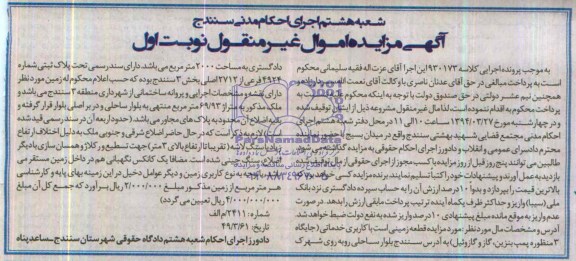 شعبه هشتم اجرای احکام مدنی سنندج
آگهی مزایده اموال غیر منقول نوبت اول
به موجب پرونده اجرایی کلاسه ۹۳۰۱۷۳ این اجرا آقای عزت اله فقیه سلیمانی محکوم
است به پرداخت مبالغی در حق آقای عدنان ناصری با وکالت آقای نعمت اله
همچنین نیم عشر دولتی در حق صندوق دولت با توجه به اینکه محکوم
پرداخت محکوم به اقدام ننموده است، لذا مال غیر منقول مشروحه ذیل از
توقیف شده
و در چهارشنبه مورخ ۱۳۹۴/۰۳/۲۷ از ساعت ۱۰ الی ۱۱ در محل دفتر شعبه هشتم اجرای
احکام مدنی مجتمع قضایی شهید بهشتی سنندج واقع در میدان بسیج با حضور نماینده
محترم دادسرای عمومی و انقلاب و دادورز اجرای احکام حقوقی به مزایده گذاشته
طالبین می توانند پنج روز قبل از روز مزایده با کسب مجوز از اجرای حقوقی از
بازدید به عمل آورند و پیشنهادات خود را کتبا تسلیم نمایند. برنده مزایده کسی
بالاترین قیمت را بپردازد و بدوا ۱۰ درصد ارزش آن را به حساب سپرده دادگستری نزد بانک
ملی (سیبا) واریز و حداکثر ظرف یکماه آینده ترتیب پرداخت مابقی ارزش را بدهد. در صورت
عدم واریز به موقع مانده مبلغ پیشنهادی ۱۰ درصد واریز شده به نفع دولت ضبط خواهد شد.
آدرس و مشخصات مال مورد نظر: مورد مزایده قطعه زمینی است با کاربری خدماتی (جایگاه
۳ منظوره پمپ بنزین، گاز و گازوئیل) به آدرس سنندج بلوار ساحلی روبه روی شهرک
دادگستری به مساحت ۲۰۰۰ متر مربع می باشد. دارای سند رسمی تحت پلاک ثبتی شماره
۲۹۲۴ فرعی از ۲۷۱۲ اصلی بخش ۳ سنندج بوده که حسب اعلام محکوم له زمین مورد نظر
دارای نقشه و مشخصات اجرایی و پروانه ساختمانی از شهرداری منطقه ۳ سنندج می باشد و
ملک مذکور به متراژ ۶۹/۹۳ متر مربع منتهی به بلوار ساحلی و در بر اصلی بلوار قرار گرفته و
محدود به پلاک های مجاور می باشد (حدود اربعه آن در سند رسمی قید شده
لازم به ذکر است که در حال حاضر اضلاع شرقی و جنوبی ملک به دلیل اختلاف ارتفاع
(تقریبا تا ارتفاع بالای ۳ متر) جهت تسطیح و رگلاژ و همسان سازی با دیگر
سنگ چینی شده است. مضافا یک کانکس نگهبانی هم در داخل زمین مستقر می
توجه به نوع کاربری زمین و دیگر عوامل دخیل در این زمینه بهای پایه و کارشناسی
هر متر مربع از زمین مذکور مبلغ ۲/۰۰۰/۰۰۰ ریال برآورد که جمع کل آن مبلغ
۴/۰۰۰/۰۰۰/۰۰۰ ریال تعیین می گردد)
شماره: ۲۴۱۱/م الف
تاریخ: ۴۹/۳/۶۱
دادورز اجرای احکام شعبه هشتم دادگاه حقوقی شهرستان سنندج - ساعد پناه
ParsNamadData